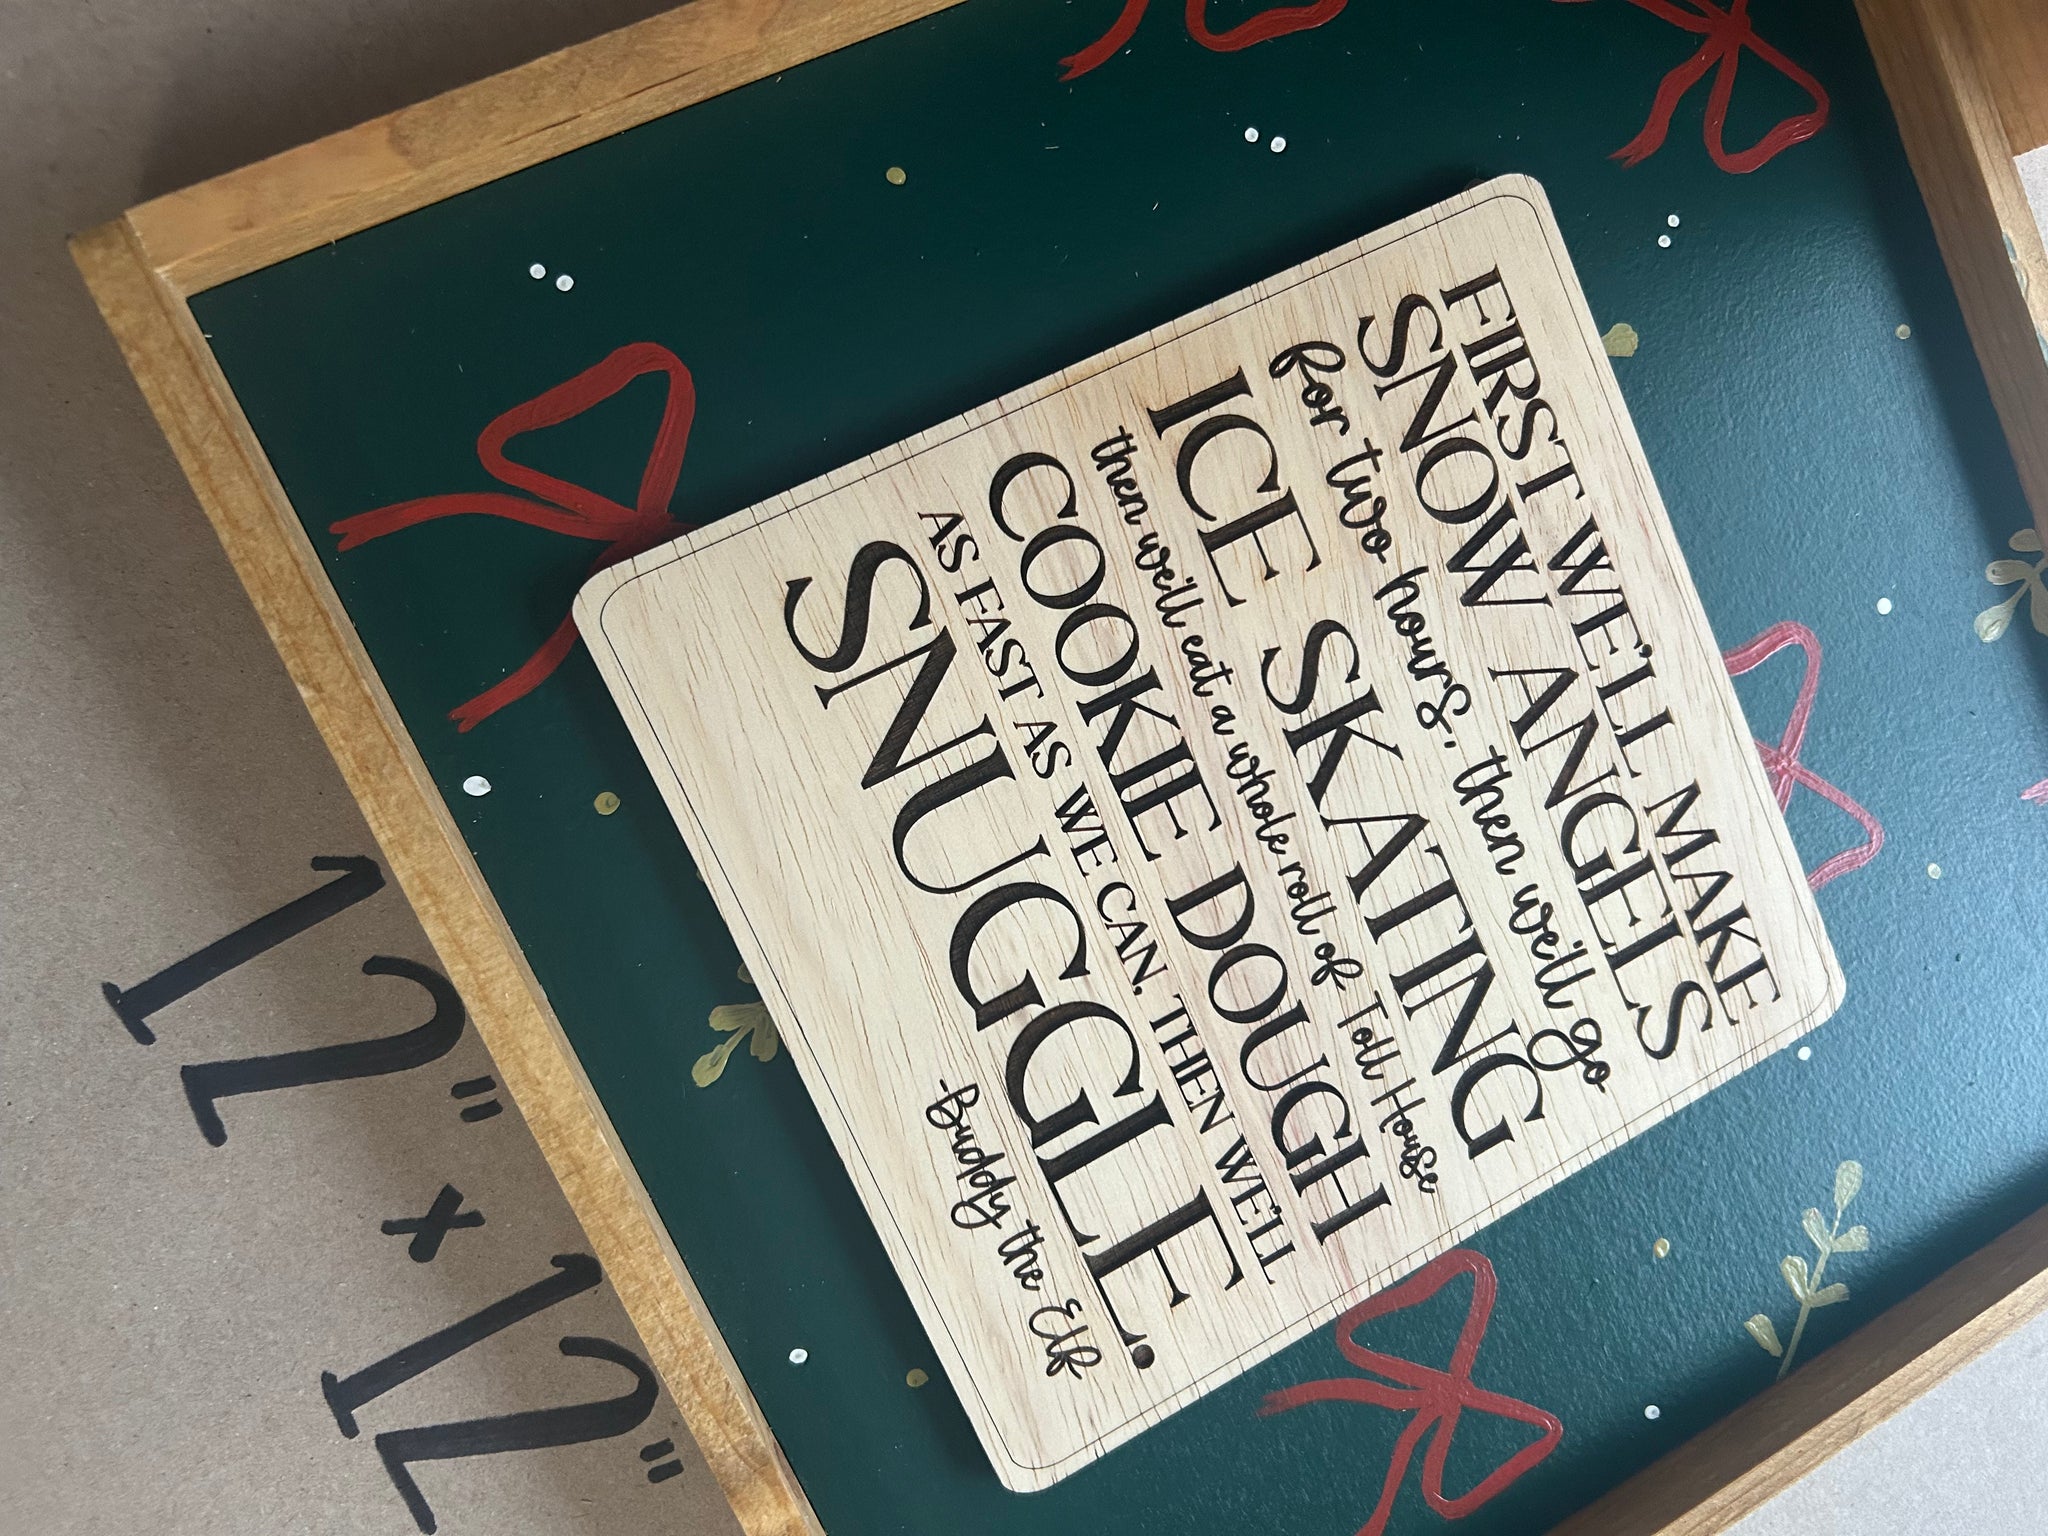 FIRST WE'LL MAKE
SNOW ANGELS
for two hours, then we'll go
ICE SKATING
then we'll eat a whole roll of Toll House
COOKIE DOUGH
AS FAST AS WE CAN, THEN WE'LL
SNUGGLE.
-Buddy the Elf
12" x 12"